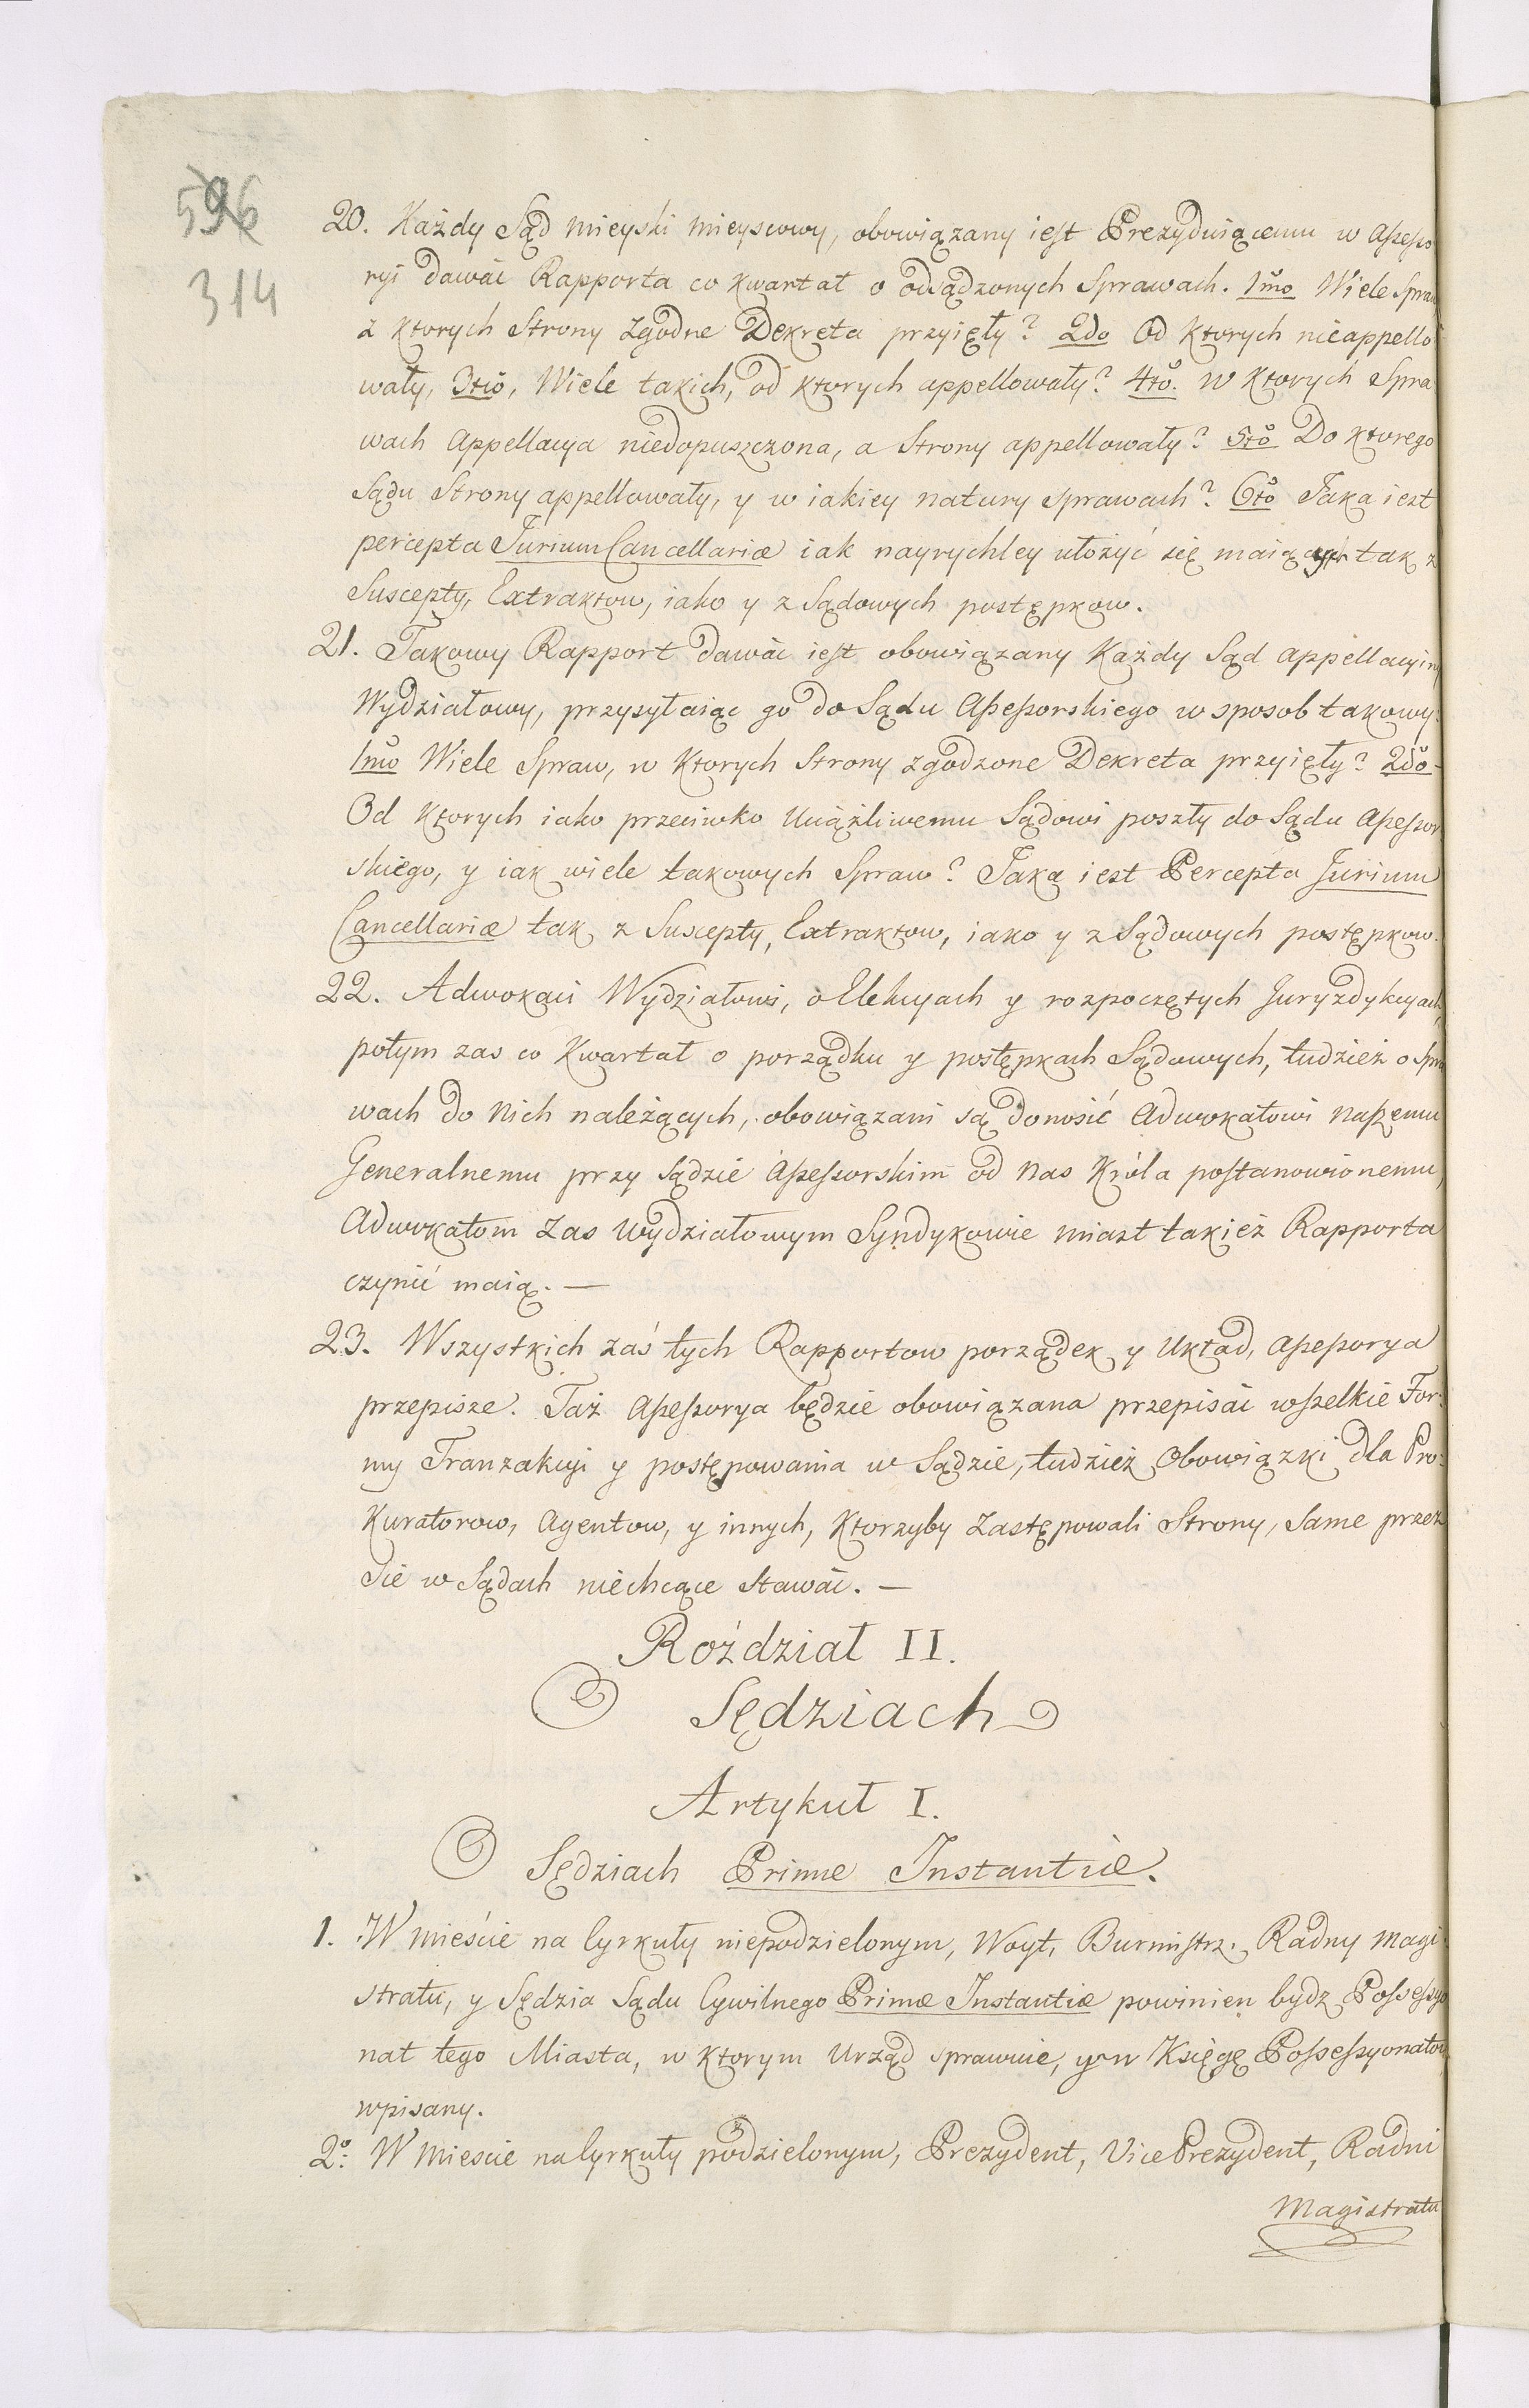 596
314
20. Każdy Sąd Mieyski Mieyscowy, obowiązany iest Prezyduiącemu w Assesso
ryi dawać Rapporta co Kwartał o odsądzonych Sprawach. 1mo Wiele Spraw
z Ktorych Strony zgodne Dekreta przyięły? 2do Od Ktorych nieappello
wały, 3tio, Wiele takich, od Ktorych appellowały? 4to. w Ktorych Spra
wach Appellacya niedopuszczona, a Strony appellowały? 5to Do Ktorego
Sądu Strony appellowały, y w iakiey natury Sprawach? 6to Jaka iest
percepta Jurium Cancellariæ iak nayrychley ułożyć się maiących tak z
Suscepty, Extraktow, iako y z Sądowych postępkow.
21. Takowy Rapport dawać iest obowiązany Każdy Sąd appellacyiny
Wydziałowy, przysyłaiąc go do Sądu Assessorskiego w sposob takowy:
1mo Wiele Spraw, w Ktorych Strony zgodzone Dekreta przyięły? 2do
Od Ktorych iako przeciwko Uciążliwemu Sądowi poszły do Sądu Assessor
skiego, y iak wiele takowych Spraw? Jaka iest Percepta Jurium
Cancellariæ tak z Suscepty, Extraktow, iako y z Sądowych postępkow.
22. Adwokaci Wydziałowi, o Elekcyach y rozpoczętych Juryzdykcyach,
potym zas co Kwartał o porządku y postępkach Sądowych, tudzież o Spra
wach do Nich należących, obowiązani są donosić Adwokatowi Naszemu
Generalnemu przy Sądzie Assessorskim od Nas Króla postanowionemu,
Adwokatom Zas Wydziałowym Syndykowie Miast takież Rapporta
czynić maią. —
23. Wszystkich zaś tych Rapportow porządek y Układ, Assessorya
przepisze. Taż Assessorya będzie obowiązana przepisać wszelkie For:
my Tranzakcyi y postępowania w Sądzie, tudzież Obowiązki dla Pro:
Kuratorow, Agentow, y innych, Ktorzyby Zastępowali Strony, Same przez
Sie w Sądach niechcące Stawać. —
Roździał II.
O Sędziach
Artykuł I.
O Sędziach Primæ Instantiæ.
1. W Mieście na Cyrkuły niepodzielonym, Woyt, Burmistrz, Radny Magi
stratu, y Sędzia Sądu Cywilnego Primæ Instantiæ powinien bydz Possessyo
nat tego Miasta, w Ktorym Urząd sprawuie, y w Księgę Possessyonatow
wpisany.
2o: W Miescie na Cyrkuły podzielonym, Prezydent, Vice Prezydent, Radni
Magistratu